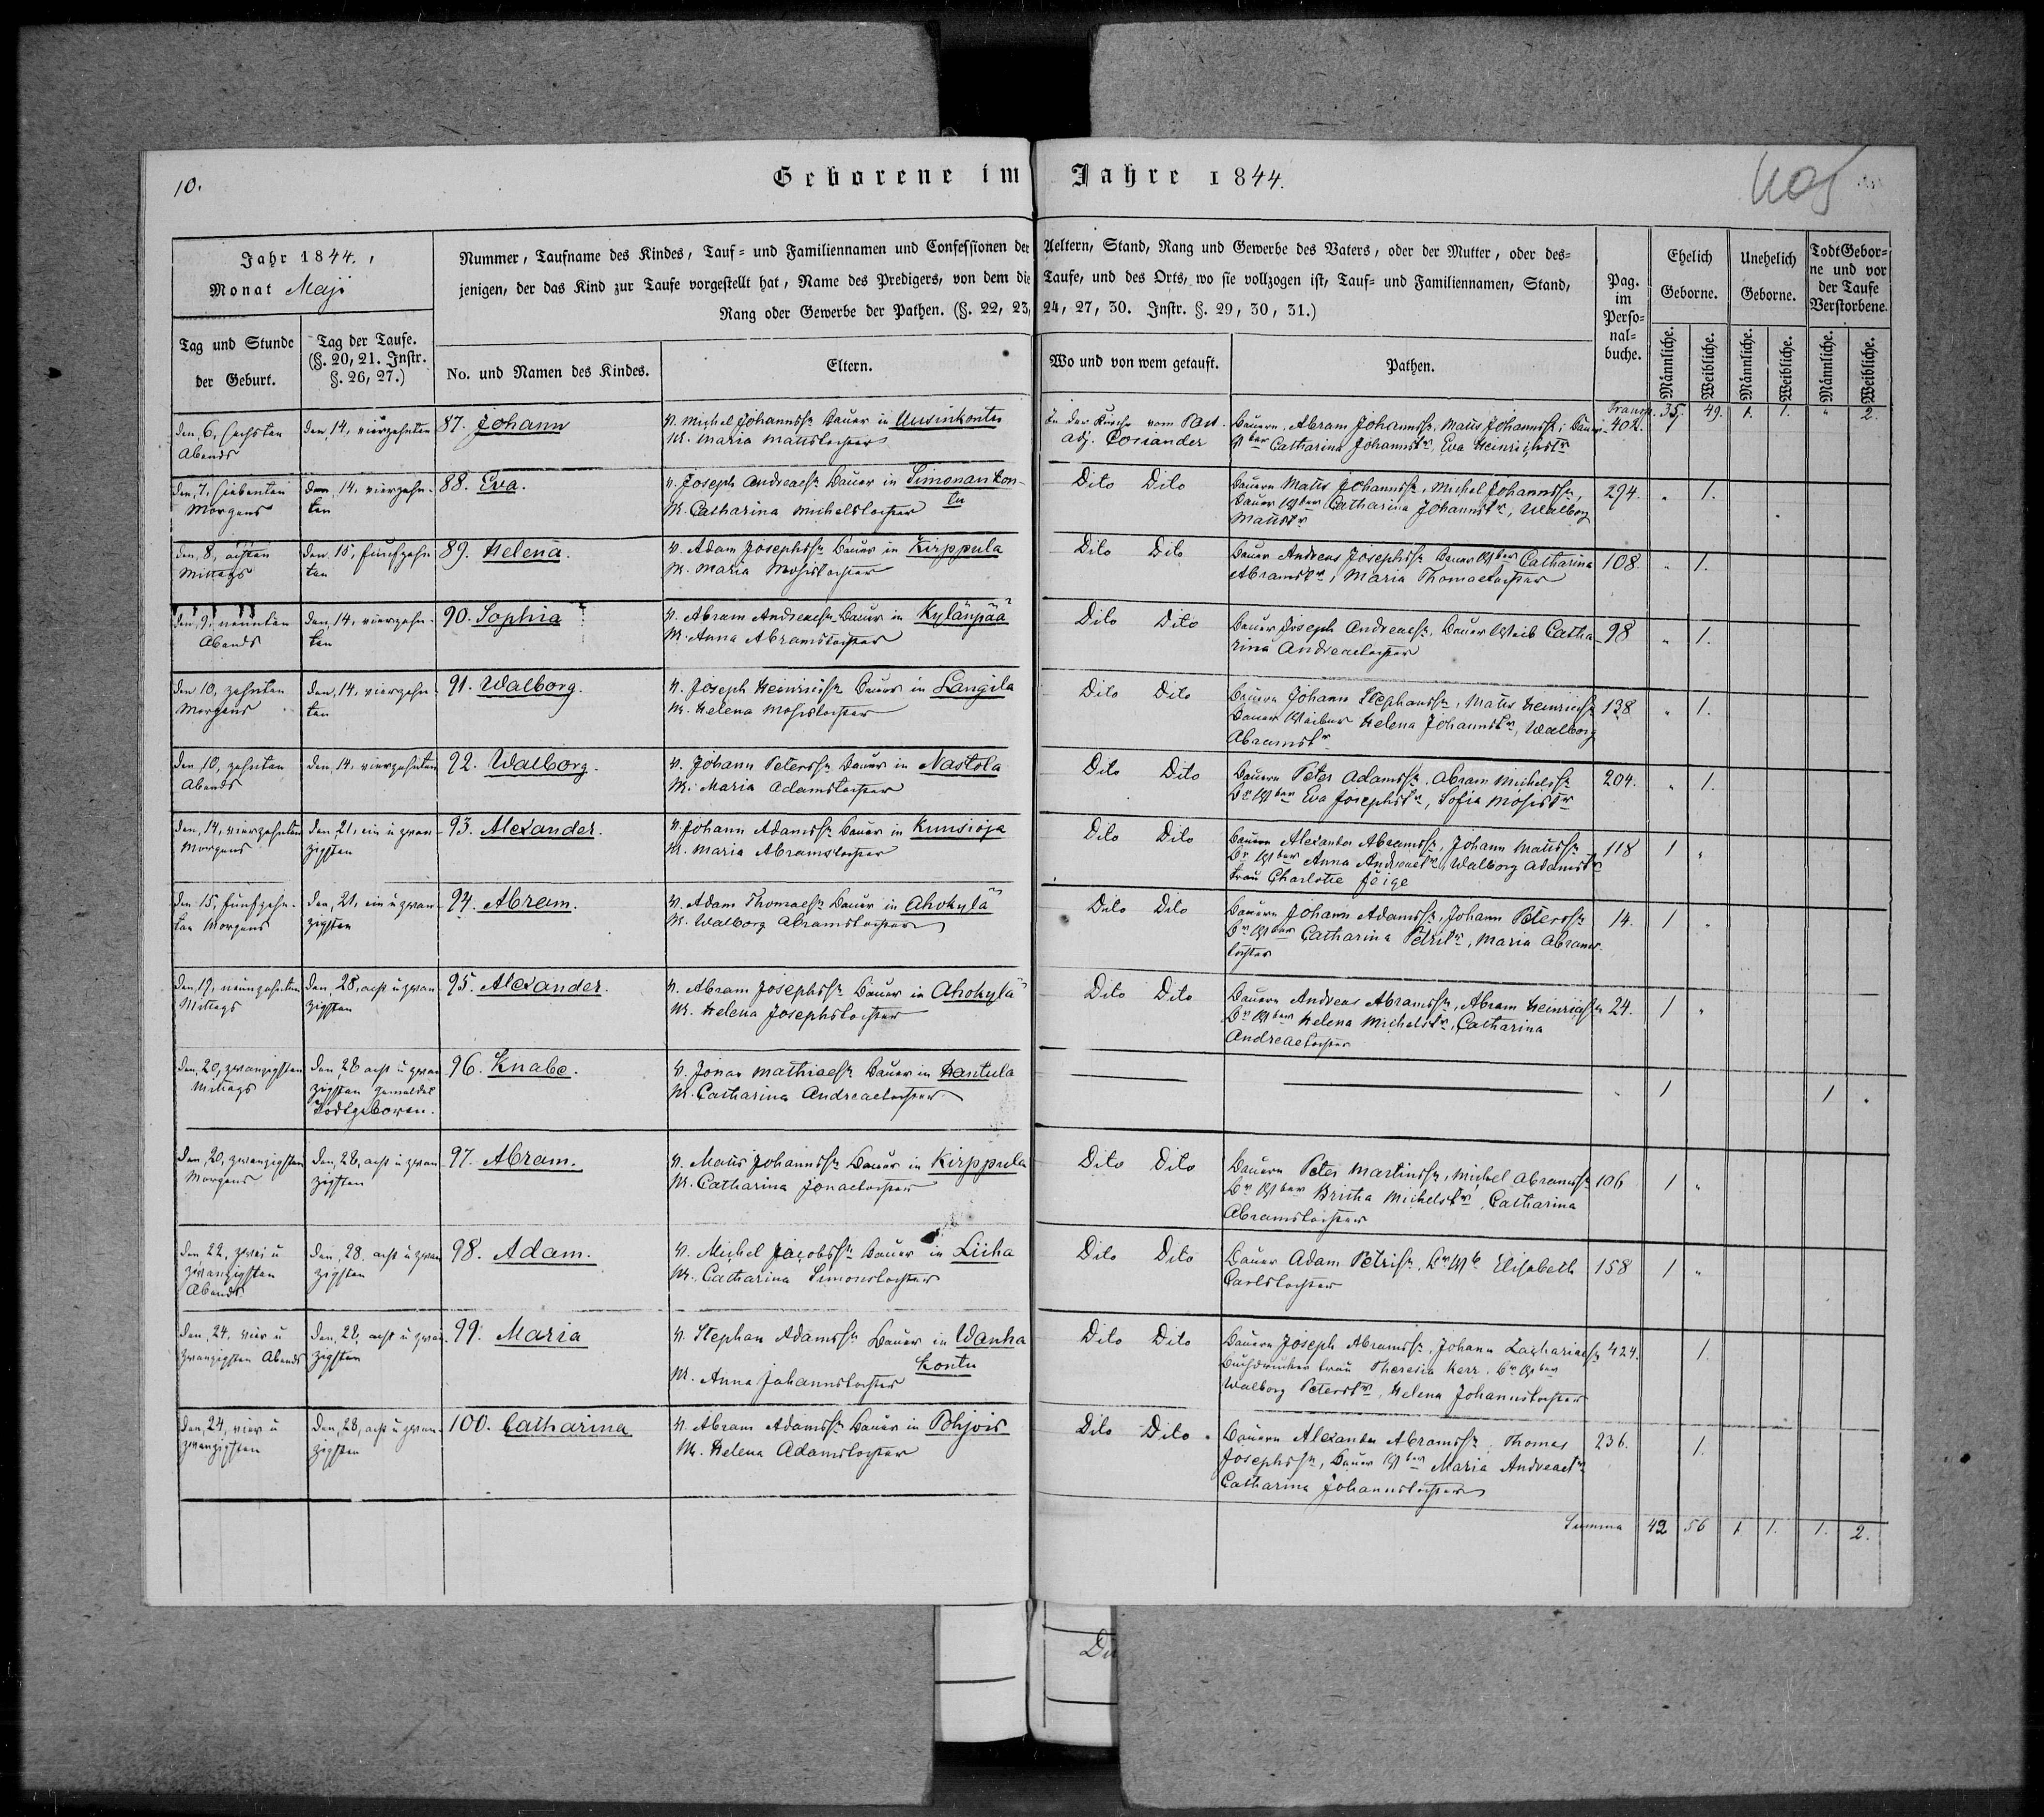 10.
Geborene im Jahre 1844.
Jahr 1844.
Monat Maji
Nummer, Taufname des Kindes, Tauf- und Familiennamen und Confessionen der Aeltern, Stand, Rang und Gewerbe des Vaters, oder der Mutter, oder des-
jenigen, der das Kind zur Taufe vorgestellt hat, Name des Predigers, von dem die Taufe, und des Orts, wo sie vollzogen ist, Tauf- und Familiennamen, Stand,
Rang oder Gewerbe der Pathen. (§. 22, 23, 24, 27, 30. Instr. §. 29, 30, 31.)
Tag und Stunde
der Geburt.
Tag der Taufe.
(§. 20, 21. Instr.
§. 26, 27.)
No. und Namen des Kindes.
Eltern.
Wo und von wem getauft.
Pathen.
Pag.
im
Perso-
nal-
buche.
Ehelich
Geborne.
Unehelich
Geborne.
Todt Gebor-
ne und vor
der Taufe
Verstorbene.
Männliche.
Weibliche.
Männliche.
Weibliche.
Männliche.
Weibliche.
Transp. 35. 49. 1. 1. " 2.
den, 6, sechsten
Abends
den, 14, vierzehnten
87. Johann
V. Michel Johannssn Bauer in Uusinkontu
M. Maria Matistochter
In der Kirche vom Past.
adj. Coriander
Bauern, Abram Johannssn, Matis Johannssn, Bauer
Wber Catharina Johannstr, Eva Heinrichstr
402.
den, 7, siebenten
Morgens
den, 14, vierzehn-
ten
88. Eva.
V. Joseph Andreaesn Bauer in Simonankon-
tu
M. Catharina Michelstochter
Dito Dito
Bauern Matis Johannssn, Michel Johannssn,
Bauer Wber Catharina Johannstr, Walborg
Matistr
294. " 1.
den, 8, achten
Mittags
den, 15, funfzehn-
ten
89. Helena.
V. Adam Josephssn Bauer in Kirppula
M. Maria Mosistochter
Dito Dito
Bauer Andreas Josephssn Bauer Wber Catharina
Abramstr, Maria Thomaetochter
108. " 1.
den, 9, neunten
Abends
den, 14, vierzehn-
ten
90. Sophia
V. Abram Andreaesn Bauer in Kylänpää
M. Anna Abramstochter
Dito Dito
Bauer Joseph Andreaesn, Bauer Weib Catha
rina Andreaetochter
98 " 1.
den 10, zehnten
Morgens
den, 14, vierzehn-
ten
91. Walborg.
V. Joseph Heinrichsn Bauer in Langila
M. Helena Mosistochter
Dito Dito
Bauern Johann Stephanssn, Matis Heinrichsn
Bauer Weiber Helena Johannstr, Walborg
Abramstr
138 " 1.
den 10, zehnten
Abends
den, 14, vierzehnten
92. Walborg.
V. Johann Peterssn Bauer in Nastola
M. Maria Adamstochter
Dito Dito
Bauern Peter Adamssn, Abram Michelssn
Br Wber Eva Josephstr, Sofia Mosistr
204. " 1.
den, 14, vierzehnten
Morgens
den, 21, ein u zwan
zigsten
93. Alexander.
V. Johann Adamssn Bauer in Kunsioja
M. Maria Abramstochter
Dito Dito
Bauern Alexander Abramssn, Johann Matissn
Br Wber Anna Andreaetr, Walborg Adamstr
Frau Charlotte
118 1 "
den 15, funfzehn-
ten Morgens
den, 21, ein u zwan
zigsten
94. Abram.
V. Adam Thomaesn Bauer in Ahokylä
M. Walborg Abramstochter
Dito Dito
Bauern Johann Adamssn, Johann Peterssn
Br Wber Catharina Petristr, Maria Abrams-
tochter
14. 1 "
den, 19, neunzehnten
Mittags
den, 28, acht u zwan
zigsten
95. Alexander.
V. Abram Josephssn Bauer in Ahokylä
M. Helena Josephstochter
Dito Dito
Bauern Andreas Abramssn, Abram Heinrichsn
Br Wber Helena Michelstr, Catharina
Andreaetochter
24. 1 "
den, 20, zwanzigsten
Mittags
den, 28 acht u zwan
zigsten gemeldet
Todtgeboren.
96. Knabe.
V. Jonas Mathiaesn Bauer in Hantula
M. Catharina Andreaetochter
1 1
den, 20, zwanzigsten
Morgens
den, 28, acht u zwan
zigsten
97. Abram.
V. Matis Johannssn Bauer in Kirppula
M. Catharina Jonaetochter
Dito Dito
Bauern Peter Martinssn, Michel Abramssn
Br Wber Britha Michelstr, Catharina
Abramstochter
106 1 "
den 22, zwei u
zwanzigsten
Abends
den, 28, acht u zwan
zigsten
98. Adam.
V. Michel Jacobssn Bauer in Liiha
M. Catharina Simonstochter
Dito Dito
Bauer Adam Petrisn, Br Wb Elisabeth
Carlstochter
158 1 "
den, 24, vier u
zwanzigsten Abends
den, 28, acht u zwan
zigsten
99. Maria
V. Stephan Adamssn Bauer in Wanha
kontu
M. Anna Johannstochter
Dito Dito
Bauern Joseph Abramssn, Johann Zachariaesn
Buchdrucker Frau Theresia Kerr, Br Wber
Walborg Peterstr, Helena Johannstochter
424. 1.
den, 24, vier u
zwanzigsten
den, 28, acht u zwan-
zigsten
100. Catharina
V. Abram Adamssn Bauer in Pohjois
M. Helena Adamstochter
Dito Dito.
Bauern Alexander Abramssn, Thomas
Josephssn, Bauer Wber Maria Andreaetr
Catharina Johannstochter
236. 1.
Summa 42 56 1 1. 1. 2.